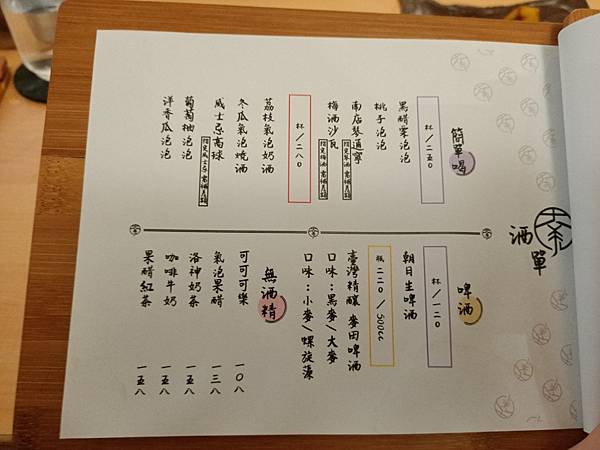 酒單
簡單喝
杯/二五〇
黑醋栗泡泡
桃子泡泡
南店琴通寧
指定琴酒需補差額
梅酒沙瓦
指定梅酒需補差額
杯/二八〇
荔枝氣泡奶酒
冬瓜氣泡燒酒
威士忌高球
指定威士忌需補差額
葡萄柚泡泡
洋香瓜泡泡
啤酒
杯/一二〇
朝日生啤酒
瓶 二二〇/500cc
臺灣精釀 麥田啤酒
口味:黑麥/大麥
口味:小麥/螺旋藻
無酒精
可可可樂 一〇八
氣泡果醋 一三八
洛神奶茶 一五八
咖啡牛奶 一五八
果醋紅茶 一五八